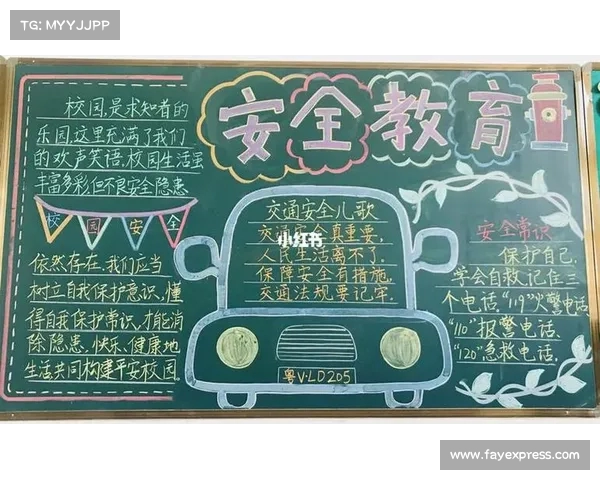 TG: MYYJJPP
安全教育
校园,是求知者的
乐园,这里充满了我们
的欢声笑语,校园生活里
丰富多彩,但不良安全隐患
校园安全
依然存在,我们应当
树立自我保护意识,懂
得自我保护常识,才能消
除隐患,快乐、健康地
生活共同构建平安校园.
交通安全儿歌
交通安全真重要,
小红书
人民生活离不了.
保障安全有措施,
交通法规要记牢.
粤V·LD205
安全常识
保护自己,
学会自救,记住三
个电话,"119"火警电话
"110"报警电话,
"120"急救电话.
www.fayexpress.com